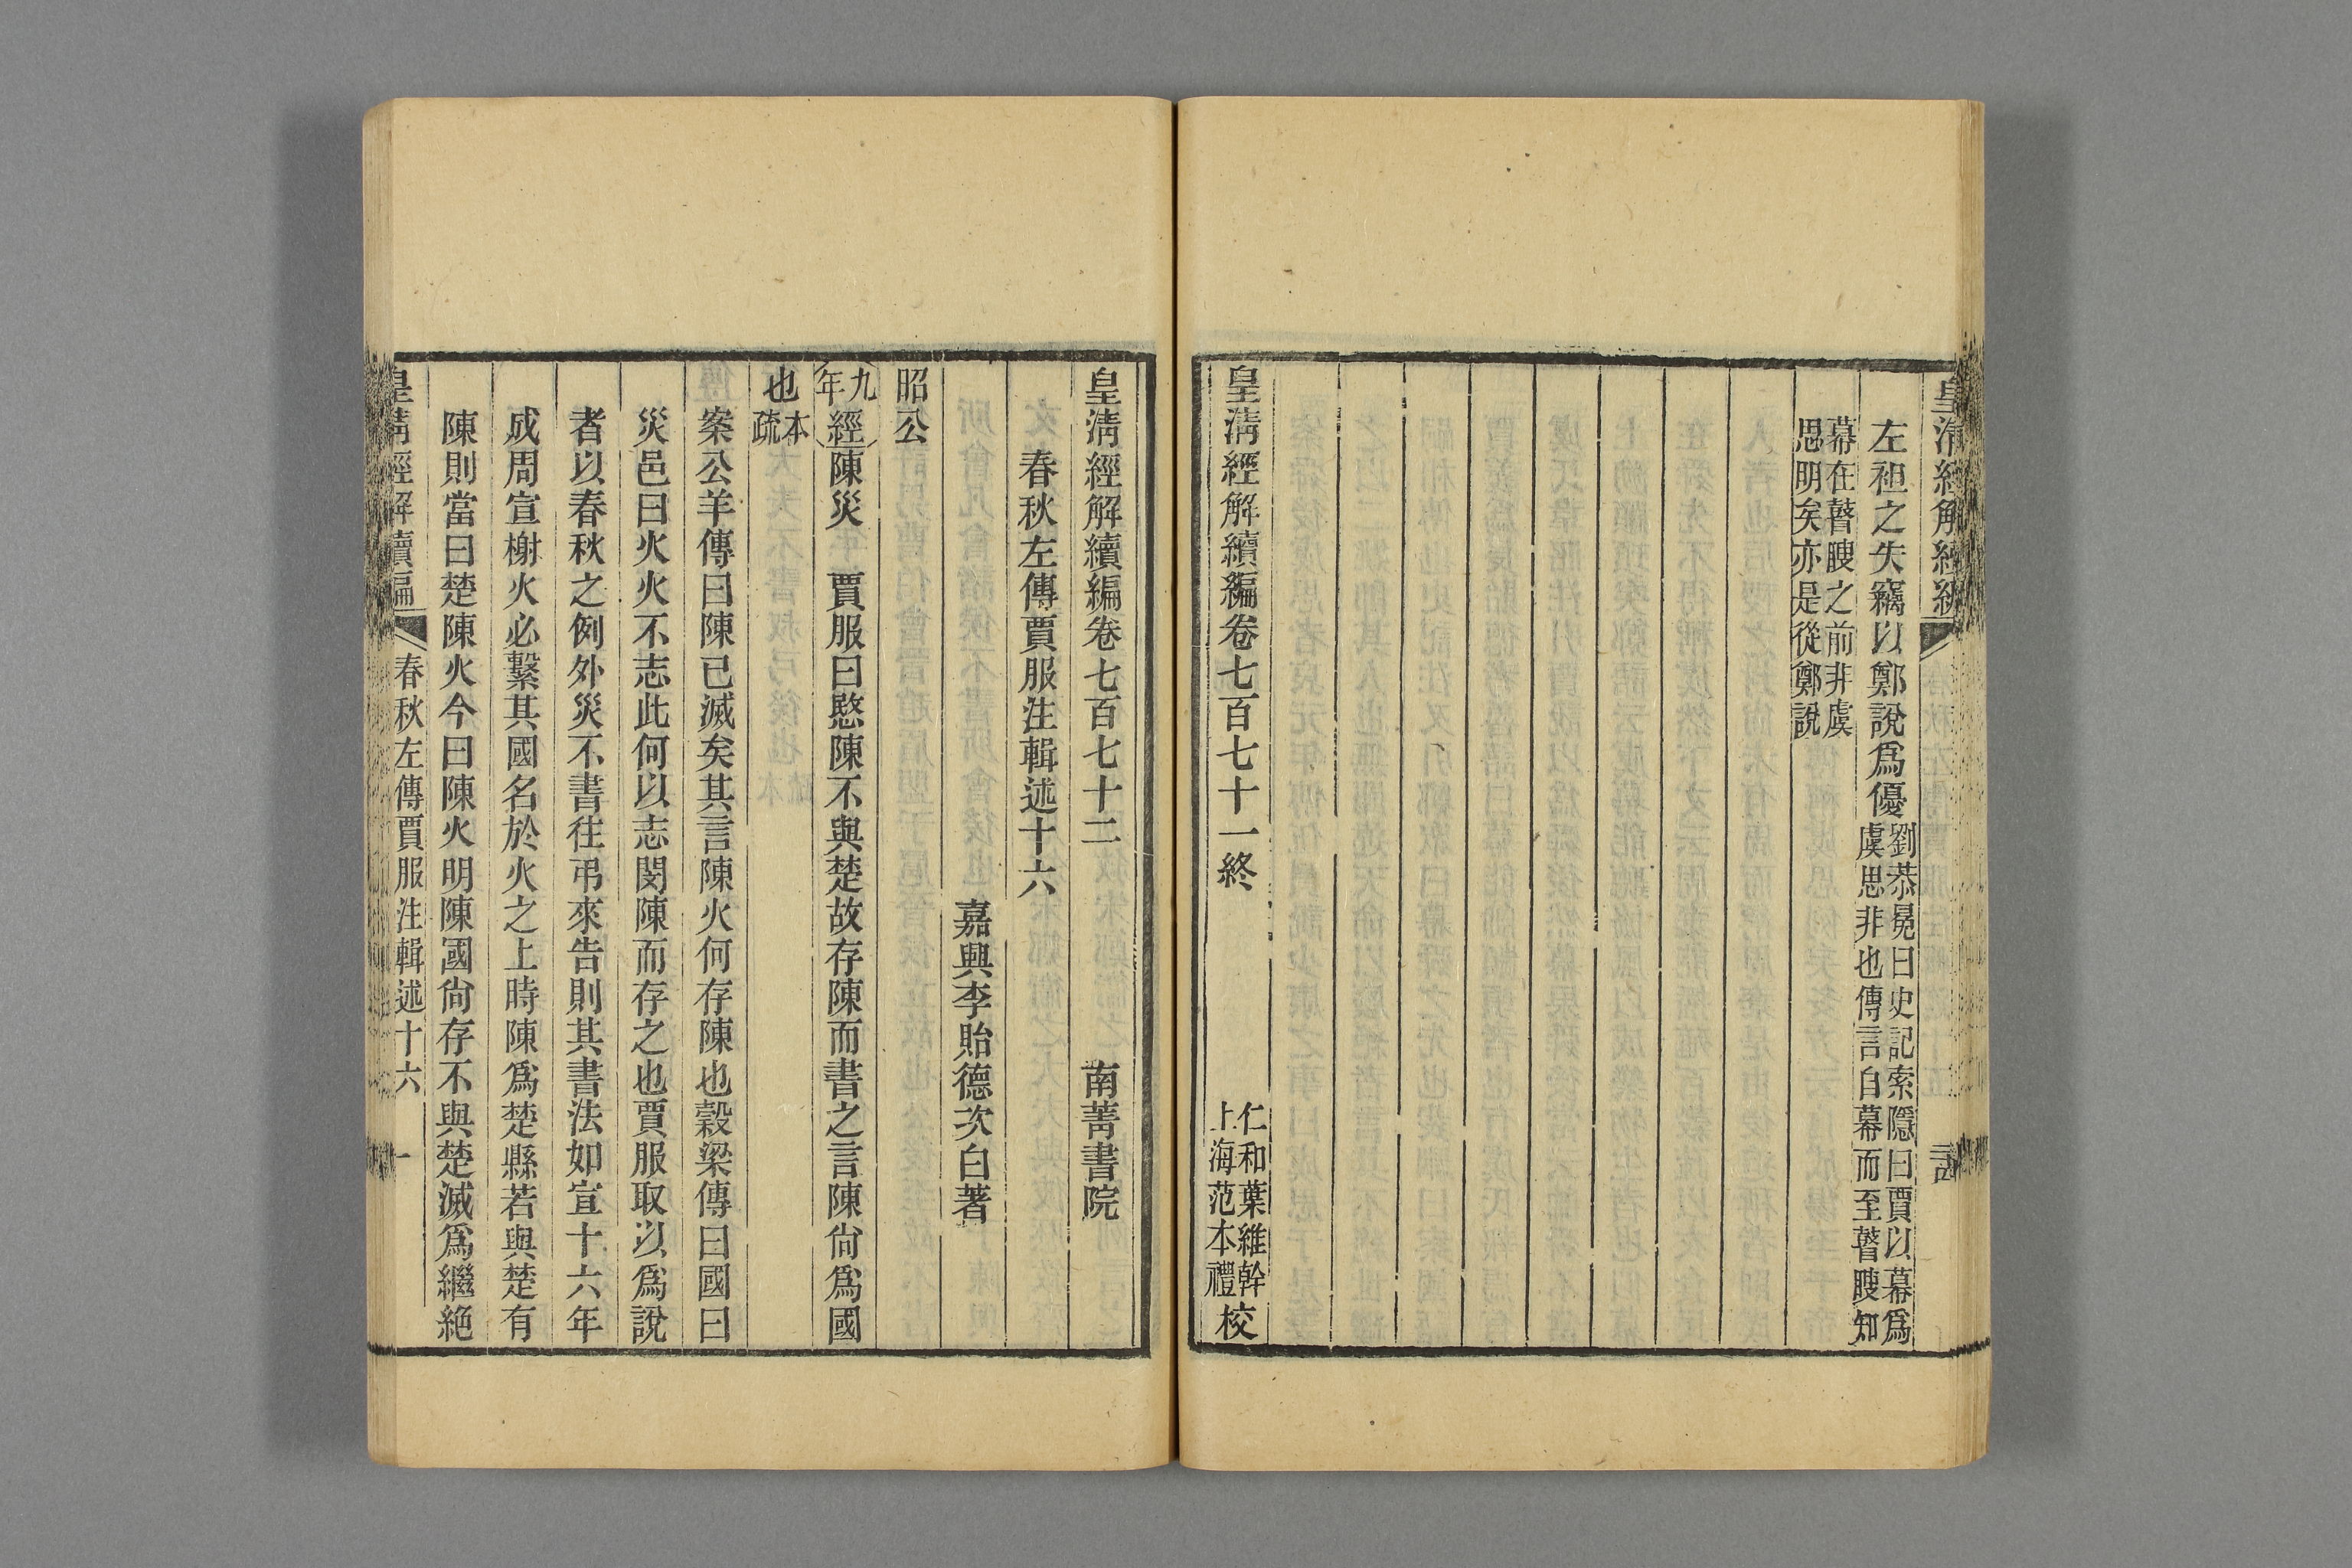 皇清經解續編
二十四
左袒之失竊以鄭說爲優劉恭冕曰史記索隱曰賈以幕爲
虞思非也傳言自幕而至瞽瞍知
幕在瞽瞍之前非虞
思明矣亦是從鄭說
皇清經解續編卷七百七十一終
仁和葉維幹
上海范本禮
校
皇清經解續編卷七百七十二
南菁書院
春秋左傳賈服注輯述十六
嘉興李貽德次白著
昭公
九年經陳災 賈服曰愍陳不與楚故存陳而書之言陳尙爲國
也本疏
案公羊傳曰陳已滅矣其言陳火何存陳也穀梁傳曰國曰
災邑曰火火不志此何以志閔陳而存之也賈服取以爲說
者以春秋之例外災不書往弔來告則其書法如宣十六年
成周宣榭火必繫其國名於火之上時陳爲楚縣若與楚有
陳則當曰楚陳火今曰陳火明陳國尙存不與楚滅爲繼絶
皇清經解續編
春秋左傳賈服注輯述十六
一